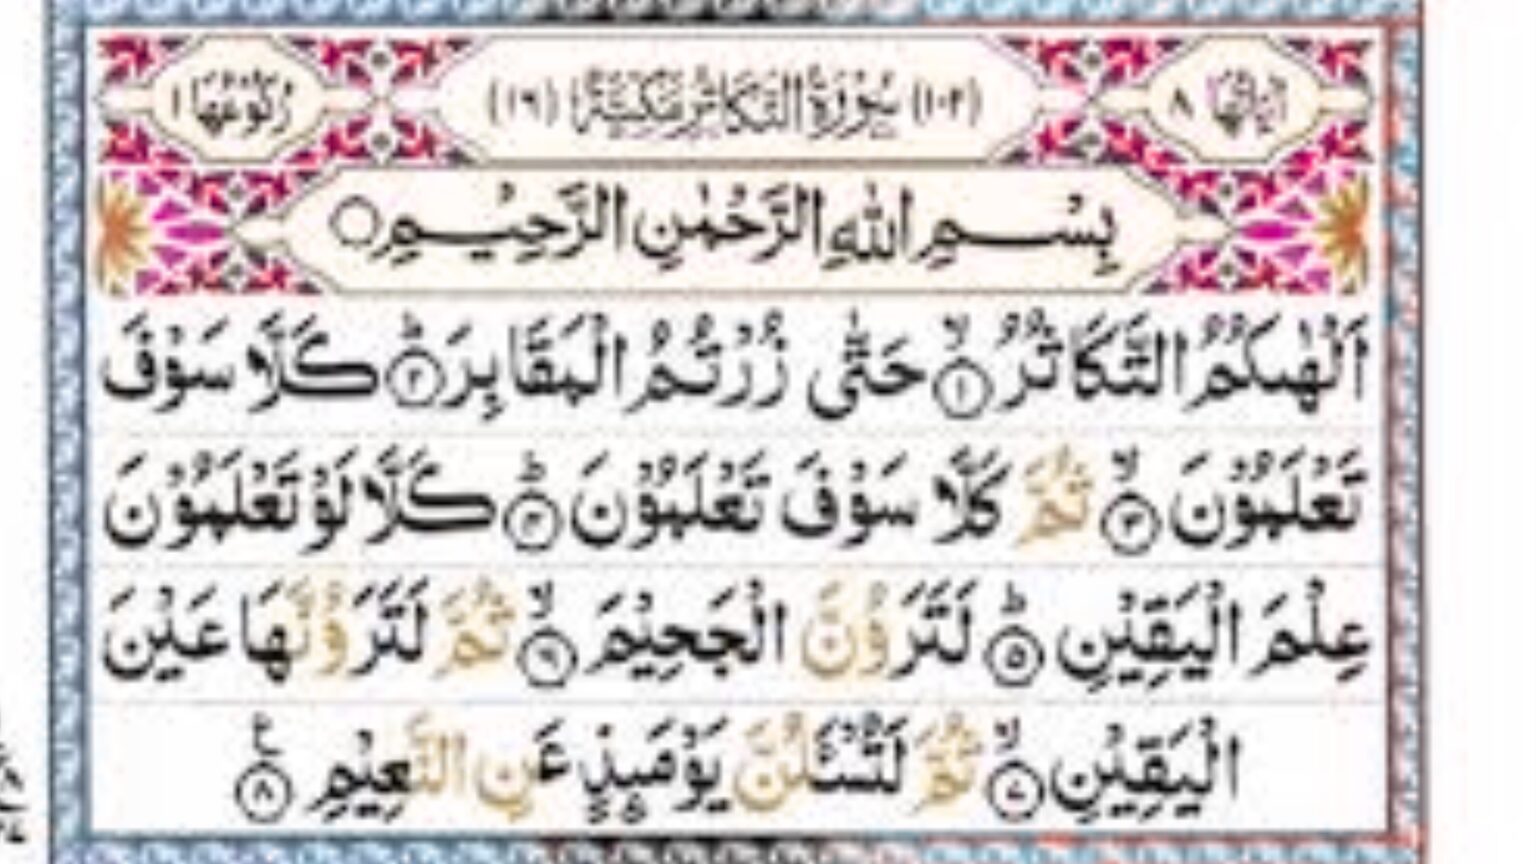 اٰیَاتُهَا ٨ (١٠٢) سُوْرَةُ التَّكَاثُرِ مَكِّيَّةٌ (١٦) رُكُوْعُهَا ١
بِسْمِ اللهِ الرَّحْمٰنِ الرَّحِيْمِ ○
اَلْهٰىكُمُ التَّكَاثُرُ ۙ﴿١﴾ حَتّٰى زُرْتُمُ الْمَقَابِرَ ؕ﴿٢﴾ كَلَّا سَوْفَ
تَعْلَمُوْنَ ۙ﴿٣﴾ ثُمَّ كَلَّا سَوْفَ تَعْلَمُوْنَ ؕ﴿٤﴾ كَلَّا لَوْ تَعْلَمُوْنَ
عِلْمَ الْيَقِيْنِ ؕ﴿٥﴾ لَتَرَوُنَّ الْجَحِيْمَ ۙ﴿٦﴾ ثُمَّ لَتَرَوُنَّهَا عَيْنَ
الْيَقِيْنِ ۙ﴿٧﴾ ثُمَّ لَتُسْـَٔلُنَّ يَوْمَىِٕذٍ عَنِ النَّعِيْمِ ﴿٨﴾ ع